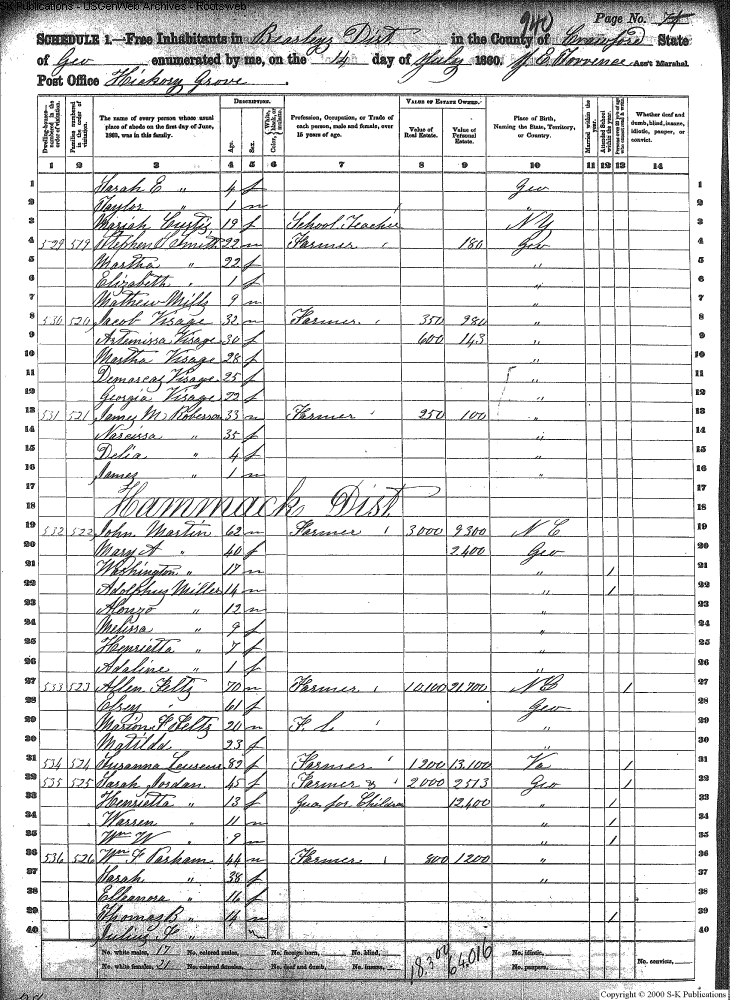 S-K Publications - USGenWeb Archives - Rootsweb
Page No. 
940
SCHEDULE 1.—Free Inhabitants in Beasleys Dist in the County of Crawford State
of Geo enumerated by me, on the 14 day of July 1860. J E Torrence Ass't Marshal.
Post Office Hickory Grove
Dwelling-house—numbered in the order of visitation. Families numbered in the order of visitation. The name of every person whose usual place of abode on the first day of June, 1860, was in this family. DESCRIPTION. Age. Sex. Color, White, black, or mulatto. Profession, Occupation, or Trade of each person, male and female, over 15 years of age. VALUE OF ESTATE OWNED. Value of Real Estate. Value of Personal Estate. Place of Birth, Naming the State, Territory, or Country. Married within the year. Attended School within the year. Whether deaf and dumb, blind, insane, idiotic, pauper, or convict.
1 2 3 4 5 6 7 8 9 10 11 12 13 14
1 Sarah E " 4 f Geo 1
2 Taylor " 1 m " 2
3 Mariah Curtis 19 f School Teacher N Y 3
4 529 519 Stephen S Smith 22 m Farmer 180 Geo 4
5 Martha " 22 f " 5
6 Elizabeth " 1 f " 6
7 Mathew Mills 9 m 7
8 530 520 Jacob Visage 32 m Farmer 350 980 " 8
9 Artemissa Visage 30 f 600 143 " 9
10 Martha Visage 28 f " 10
11 Demarcas Visage 25 f " 11
12 Georgia Visage 22 f " 12
13 531 521 James M Roberson 33 m Farmer 250 100 " 13
14 Narcissa " 35 f " 14
15 Delia " 4 f " 15
16 James " 1 m " 16
17 17
18 Hammack Dist 18
19 532 522 John Martin 62 m Farmer 3000 9300 N C 19
20 Mary A " 40 f 2400 Geo 20
21 Washington " 17 m " 1 21
22 Adolphus Miller 14 m " 1 22
23 Alonzo " 12 m 23
24 Melissa " 9 f " 24
25 Henrietta " 7 f " 25
26 Adaline " 1 f " 26
27 533 523 Allen Feltz 70 m Farmer 10,100 21,700 N C 1 27
28 Elsey " 61 f Geo 28
29 Marion F Feltz 20 m F. L " 29
30 Matilda 23 f " 30
31 534 524 Susanna 82 f Farmer 1200 13,100 Va 1 31
32 535 525 Sarah Jordan 45 f Farmer & 2000 2513 Geo 1 32
33 Henrietta " 13 f Gua for Children 12400 " 1 33
34 Warren " 11 m " 1 34
35 Wm W " 9 m " 1 35
36 536 526 Wm F Parham 44 m Farmer 800 1200 " 36
37 Sarah " 38 f " 37
38 Elleanora " 16 f 38
39 Thomas B " 14 m 1 39
40 Julius F " m 40
No. white males, 17 No. colored males, No. foreign born, No. blind, 18.300 64,016 No. idiotic,
No. white females, 21 No. colored females, No. deaf and dumb, No. insane, No. paupers, No. convicts,
Copyright © 2000 S-K Publications